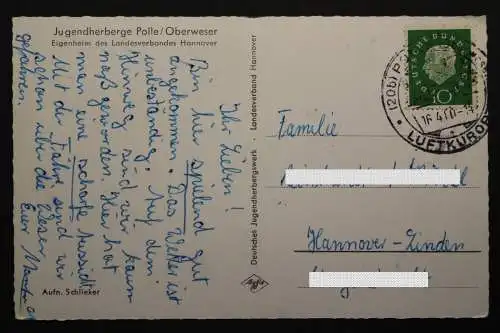 Jugendherberge Polle/Oberweser
Eigenheim des Landesverbandes Hannover
Ihr Lieben!
Bin hier spielend gut
angekommen. Das Wetter ist
unbeständig. Auf dem
Hinweg sind wir kaum
naß geworden. Hier hat
man eine scharfe Aussicht.
Mit der Fähre sind wir
schon über die Weser
gefahren.
Euer
Aufn. Schlieker
Deutsches Jugendherbergswerk - Landesverband Hannover
Agfa
DEUTSCHE BUNDESPOST
10
(20b)
LUFTKURORT
Familie
Hannover-Linden